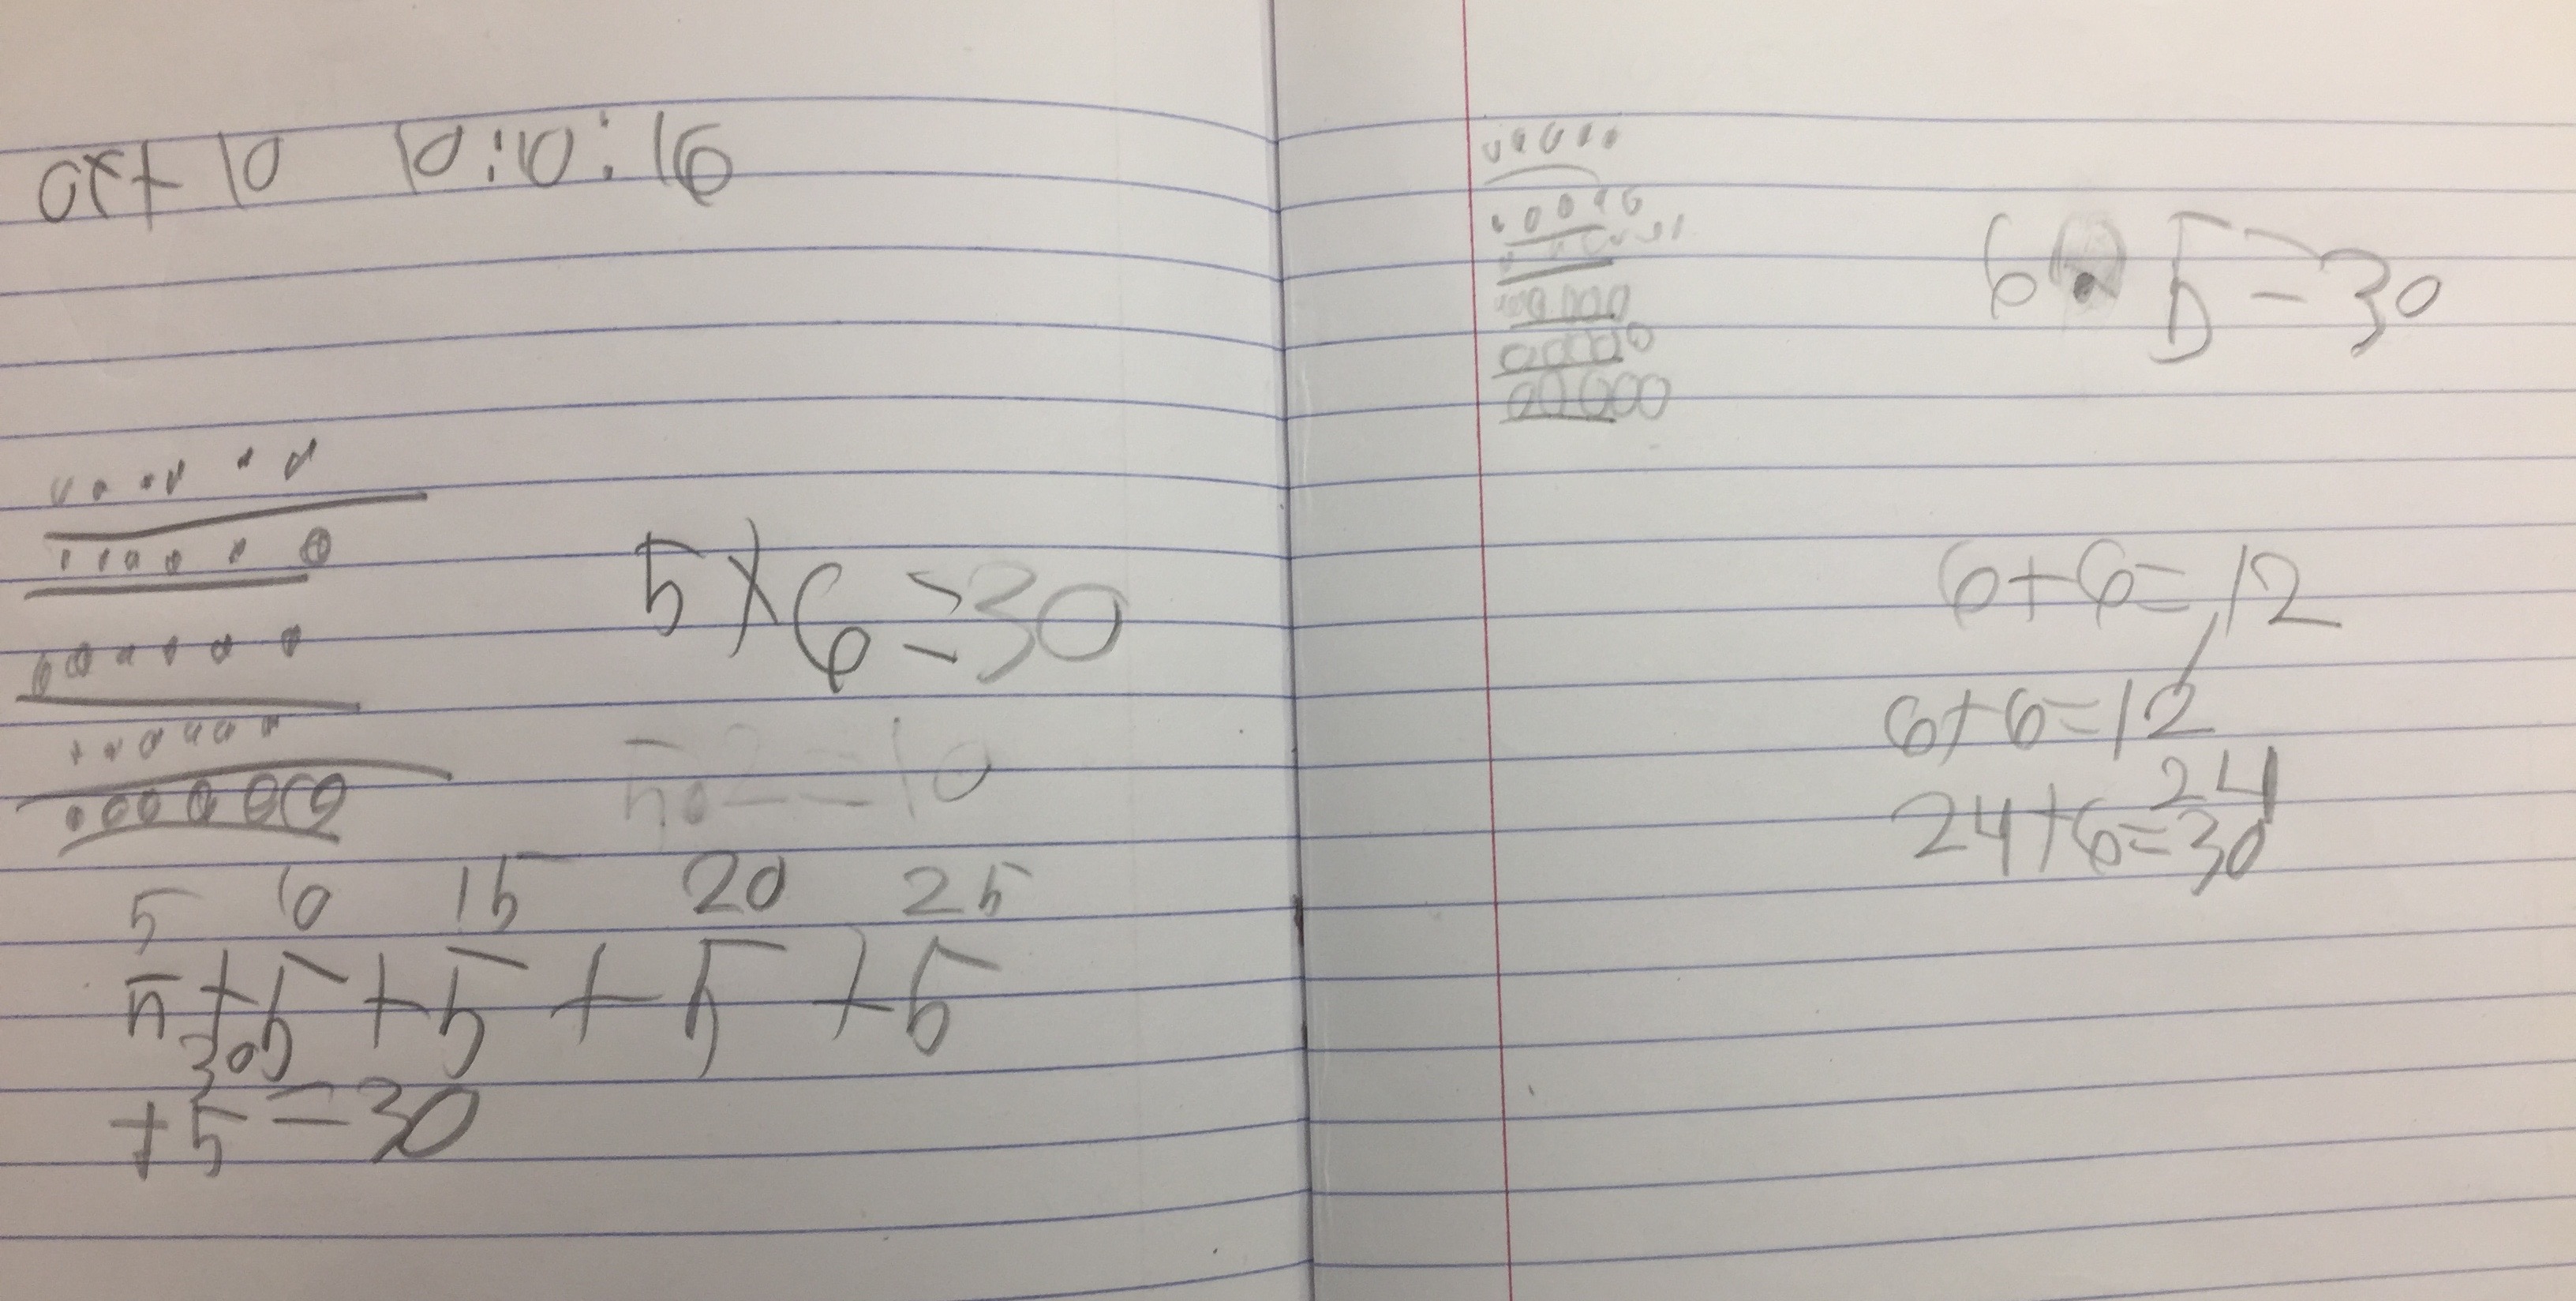 10:10:16
5 x 6 = 30
5 10 15 20 25
5 + 5 + 5 + 5 + 5
30
+ 5 = 30
6 • 5 = 30
6 + 6 = 12
6 + 6 = 12
24
24 + 6 = 30